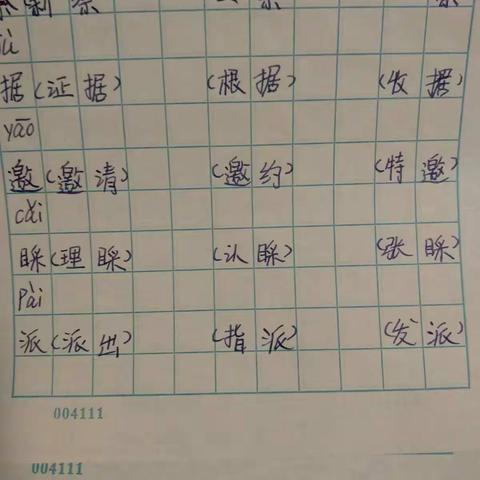 据(证据) (根据) (收据)
yāo
邀(邀清) (邀约) (特邀)
cǎi
睬(理睬) (认睬) (张睬)
pài
派(派出) (指派) (发派)
004111
004111